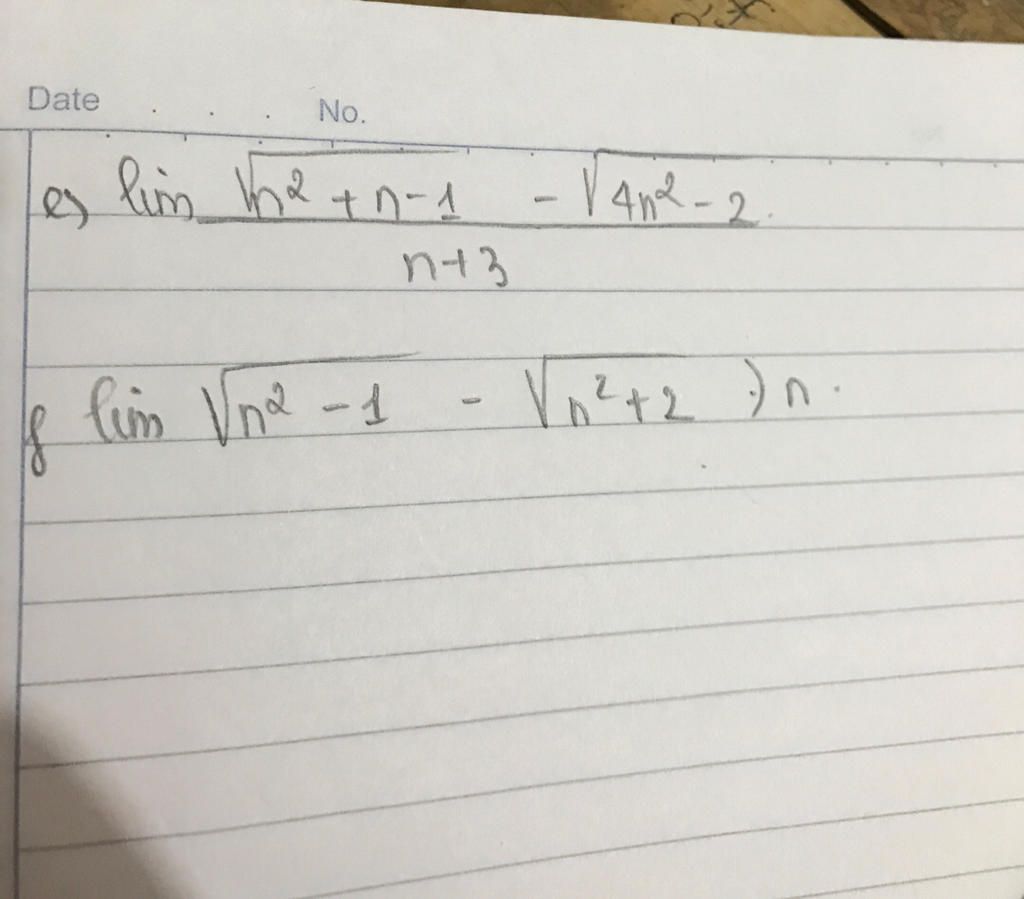 Date . . . No.
e) lim (√(n² + n - 1) - √(4n² - 2)) / (n + 3)
f lim √(n² - 1) - √(n² + 2) ) n.